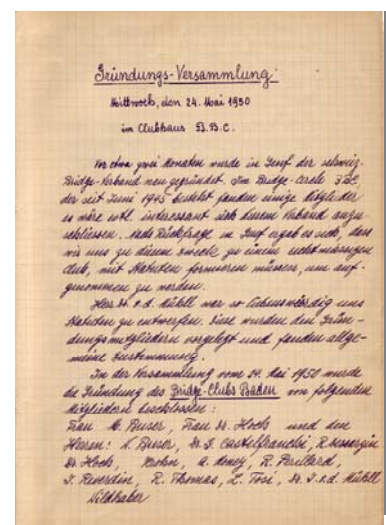 Gründungs-Versammlung:
Mittwoch, den 24. Mai 1950
im Clubhaus B.B.C.
Vor etwa zwei Monaten wurde in Genf der schweiz.
Bridge-Verband neu gegründet. Im Bridge-Cercle BBC,
der seit Juni 1945 besteht fanden einige Mitglieder
es wäre evtl. interessant sich diesem Verband anzu-
schliessen. Nach Rückfrage in Genf ergab es sich, dass
wir uns zu diesem Zweck zu einem rechtmässigen
Club, mit Statuten formieren müssen, um auf-
genommen zu werden.
Herr Dr. v.d. Mühll war so liebenswürdig uns
Statuten zu entwerfen. Diese wurden den Grün-
dungsmitgliedern vorgelegt und fanden allge-
meine Zustimmung.
In der Versammlung vom 24. Mai 1950 wurde
die Gründung des Bridge-Clubs Baden von folgenden
Mitgliedern beschlossen:
Frau M. Buser, Frau Dr. Hoch und den
Herren: A. Buser, Dr. G. Castelfranchi,
Dr. Hoch, Hohn, A. Honey, R. Perillard,
J. Reverdin, R. Thomas, L. Tosi, Dr. J. v.d. Mühll
Wildhaber